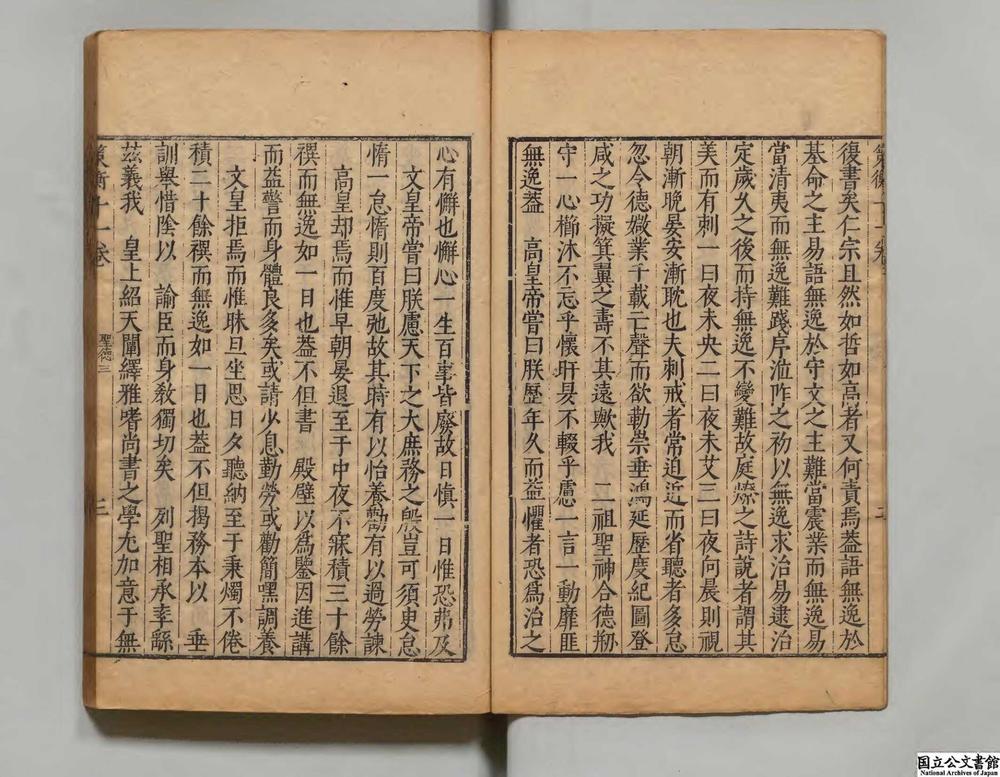 復書矣仁宗且然如哲如高者又何責焉葢語無逸於
基命之主易語無逸於守文之主難當震業而無逸易
當清夷而無逸難踐序涖阼之初以無逸求治易逮治
定歲久之後而持無逸不變難故庭燎之詩說者謂其
美而有刺一曰夜未央二曰夜未艾三曰夜向晨則視
朝漸晚晏安漸耽也夫刺戒者常迫近而省聽者多怠
忽令德媺業千載亡聲而欲勒崇垂鴻延歷度紀圖登
咸之功擬箕翼之壽不其遠歟我 二祖聖神合德刱
守一心櫛沐不忘乎懷旰昃不輟乎慮一言一動靡匪
無逸葢 高皇帝嘗曰朕歷年久而益懼者恐爲治之
心有懈也懈心一生百事皆廢故日慎一日惟恐弗及
文皇帝嘗曰朕慮天下之大庶務之殷豈可須臾怠
惰一怠惰則百度弛故其時有以怡養勸有以過勞諫
高皇却焉而惟早朝晏退至于中夜不寐積三十餘
禩而無逸如一日也葢不但書 殿壁以爲鑒因進講
而益警而身體良多矣或請少息勤勞或勸簡嘿調養
文皇拒焉而惟昧旦坐思日夕聽納至于秉燭不倦
積二十餘禩而無逸如一日也葢不但揭務本以 垂
訓舉惜陰以 諭臣而身敎獨切矣 列聖相承率繇
茲義我 皇上紹天闡繹雅嗜尚書之學尤加意于無
策衡十一卷
聖德三
三
二
国立公文書館
National Archives of Japan